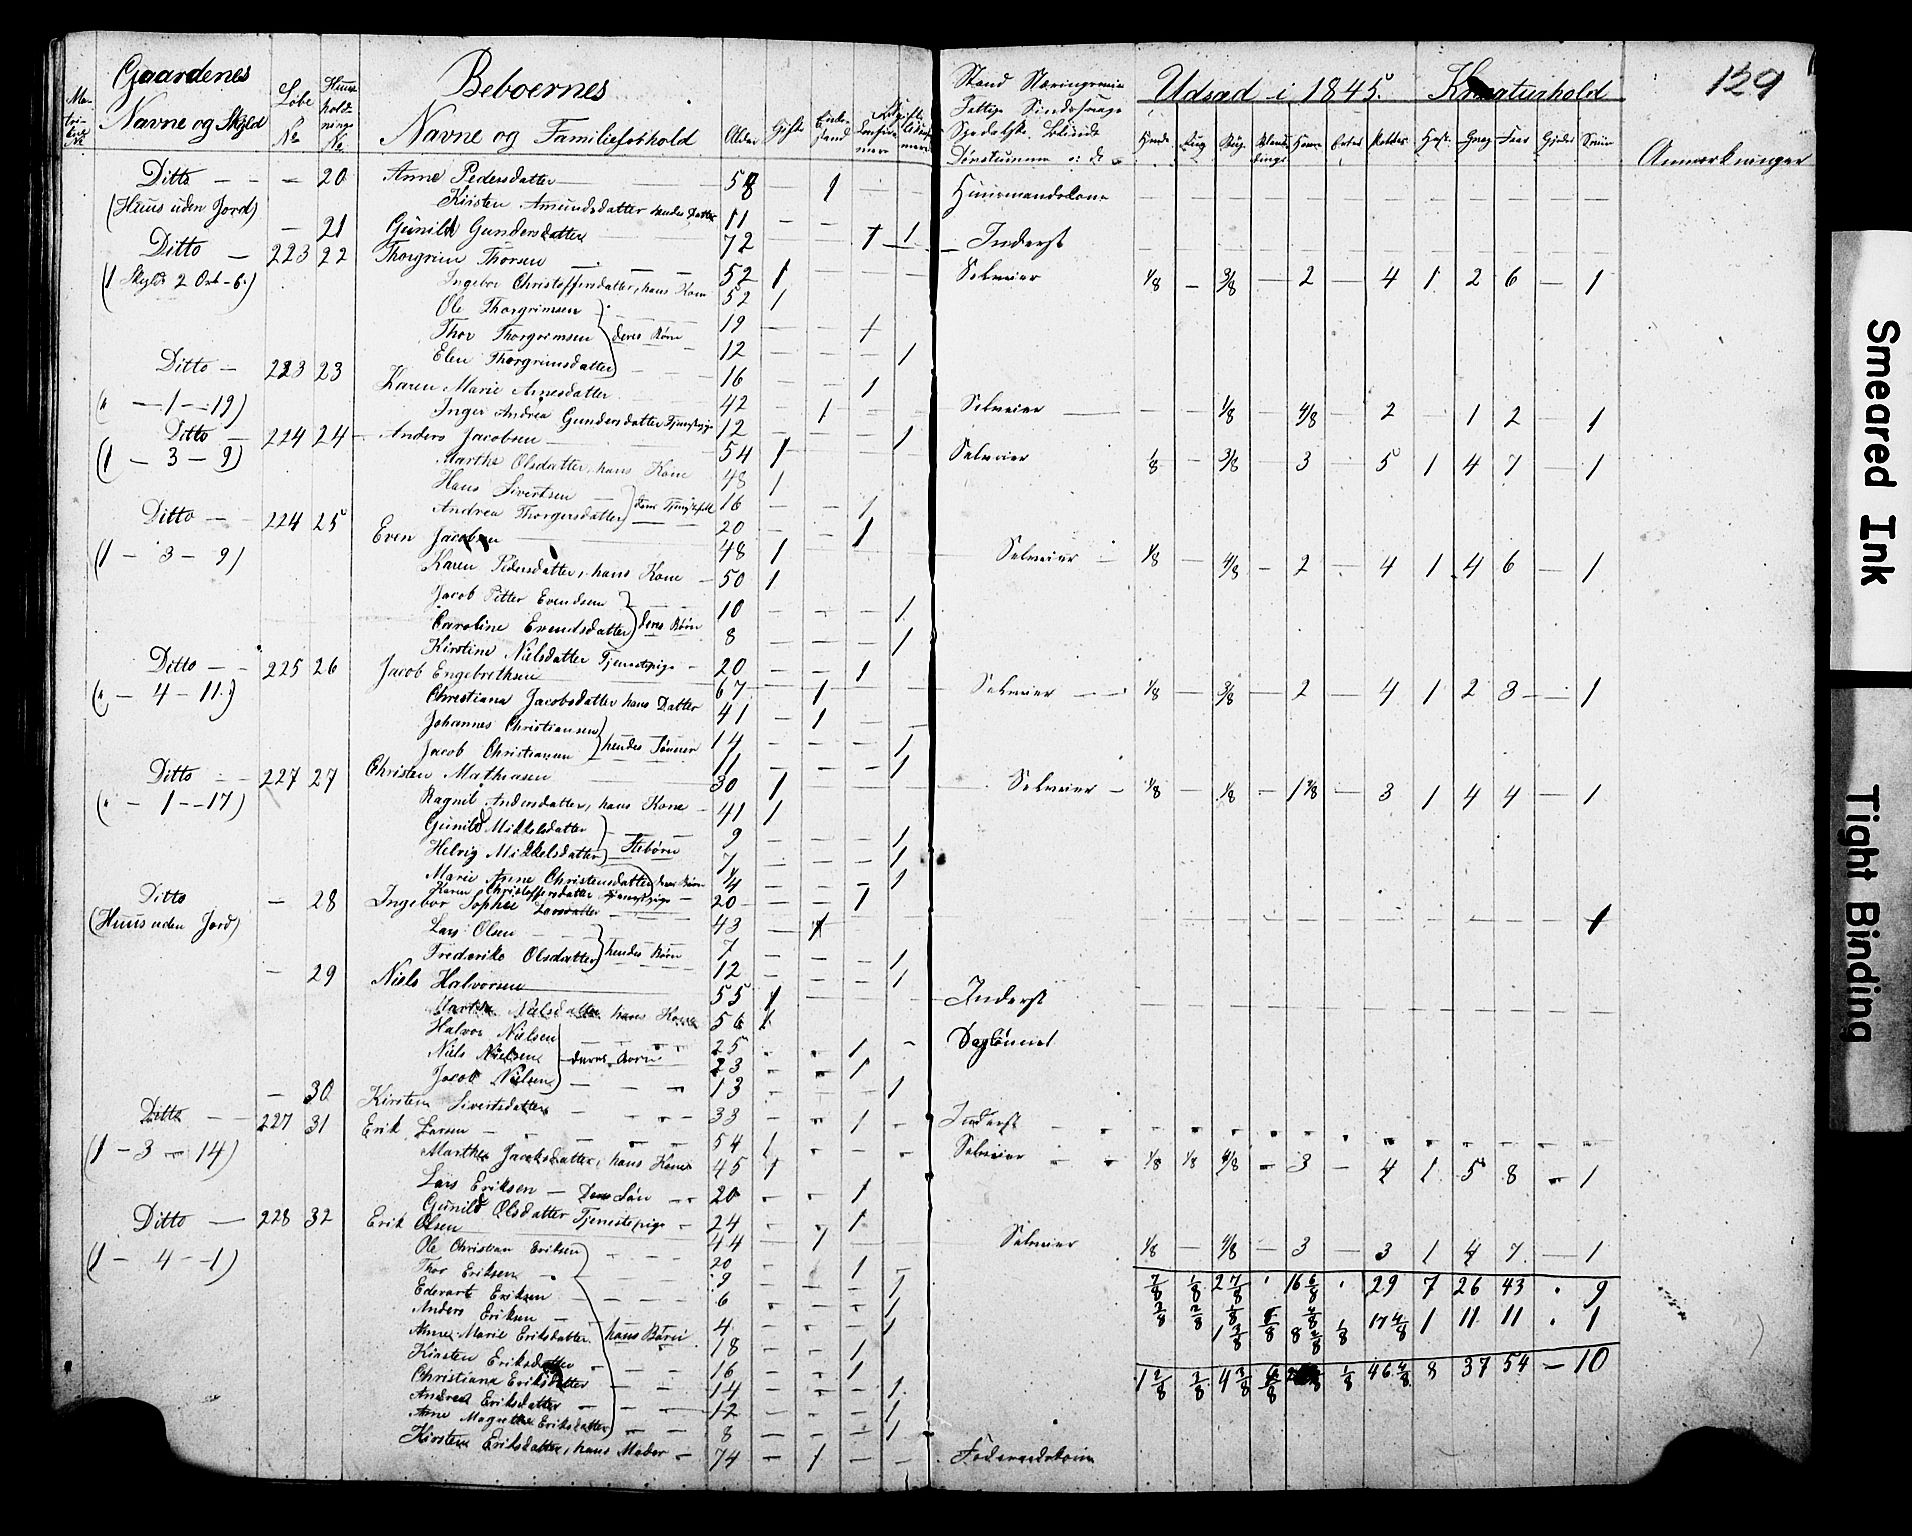 129
Gaardenes Navne og Skyld
Løbe No
Huus holdnings No
Beboernes
Navne og Familieforhold
Alder
Gifte
Enkestand
Udsæd i 1845. Kreaturhold
Anmærkninger
Ditto — — — 20 Anne Pedersdatter — 58 — 1 — — Huusmandskone
(Huus uden Jord) Kirsten Amundsdatter hendes Datter 11
— 21 Gunild Gundersdatter 72 Inderst
Ditto — 223 22 Thorgrim Thorsen 52 1 Selveier 1/8 — 3/8 — 2 — 4 1 2 6 — 1
(1 Skyld 2 Ort - 6 ) Ingebor Christoffersdatter, hans Kone 52 1
Ole Thorgrimsen 19
Thor Thorgrimsen deres Børn 12
Elen Thorgrimsdatter 16
Ditto — 223 23 Karen Marie Arnesdatter 42 — 1 Selveier — — 1/8 — 4/8 — 2 1 2 — 1
(" — 1 — 19) Inger Andrea Gundersdatter Tjenestepige 12 1
Ditto — 224 24 Anders Jacobsen — 54 1 Selveier 1/8 — 3/8 — 3 — 5 1 4 7 — 1
(1 — 3 — 9) Marthe Olsdatter, hans Kone 48 1
Hans Sivertsen 16
Andrea Thorgersdatter 20
Ditto — — 224 25 Even Jacobsen 48 1 Selveier — 1/8 — 4/8 — 2 — 4 1 4 6 — 1
(1 — 3 — 9) Karen Pedersdatter, hans Kone — 50 1
Jacob Petter Evendsen 10 — — — 1
Caroline Evendsdatter deres Børn 8 — — — 1
Kirstine Nielsdatter Tjenestepige — 20 — — 1
Ditto — — 225 26 Jacob Engebrethsen 67 — 1 Selveier — — 1/8 — 3/8 — 2 — 4 1 2 3 — 1
(" — 4 — 11) Christiana Jacobsdatter hans Datter 41 — 1 — —
Johannes Christiansen 14 — — — 1
Jacob Christiansen hendes Sønner 11 — — — 1
Ditto — — 227 27 Christen Mathiasen 30 1 Selveier — 1/8 — 1/8 — 1 — 3 1 4 4 — 1
(" — 1 — 17) Ragnil Andersdatter, hans Kone — 41 1
Gunild Mikkelsdatter 9 — — — 1
Helvig Mikkelsdatter Stebørn 7 — — — 1
Marie Anne Christensdatter deres Børn 4 — — — 1
Karen Christoffersdatter Tjenestepige — 20 — — 1
Ditto — 28 Ingebor Sophie Larsdatter 43 — 1
(Huus uden Jord) Lars Olsen 7 — — — 1
Frederike Olsdatter hendes Børn 12 — — — 1
— 29 Niels Halvorsen 55 1 Inderst
Marthe Nielsdatter hans Kone 56 1
Halvor Nielsen 25 1 — Dagleiner
Niels Nielsen deres Børn 23 1
Jacob Nielsen 13 1
— 30 Kirsten Sivertsdatter — 33 1 — Inderst
Ditto — — 227 31 Erik Larsen — 54 1 Selveier 1/8 1/8 4/8 — 3 — 4 1 5 8 — 1
(1 — 3 — 14) Marthe Jacobsdatter, hans Kone 45 1
Lars Eriksen — Deres Søn — 20 1
Gunild Olsdatter Tjenestepige — 24 1
Ditto — 228 32 Erik Olsen 44 1 Selveier 1/8 — 4/8 — 3 — 3 1 4 7 — 1
(1 — 4 — 1) Ole Christian Eriksen 20 1
Thor Eriksen 9 1
Edevart Eriksen 6 1
Anders Eriksen 4 1
Anne Marie Eriksdatter hans Børn 18 1
Kirsten Eriksdatter 16 1
Christiana Eriksdatter 14 1
Andrea Eriksdatter 12 1
Anne Magrethe Eriksdatter 8 1
Kirsten Eriksdatter, hans Moder — 74 — 1 Føderaadskone
7/8 1/8 2 7/8 16 6/8 29 7 26 43 9
17 4/8 1 11 11 1
1 2/8 4 3/8 1/8 46 4/8 8 37 54 — 10
Smeared Ink
Tight Binding